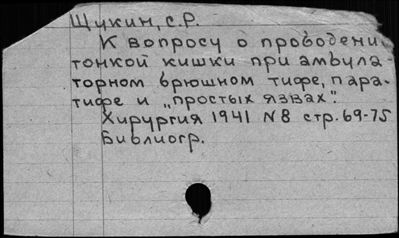 Щукин, С.Р.
К вопросу о прободени
тонкой кишки при амбула-
торном брюшном тифе, пара-
тифе и „простых язвах".
Хирургия 1941 N8 стр. 69-75
Библиогр.